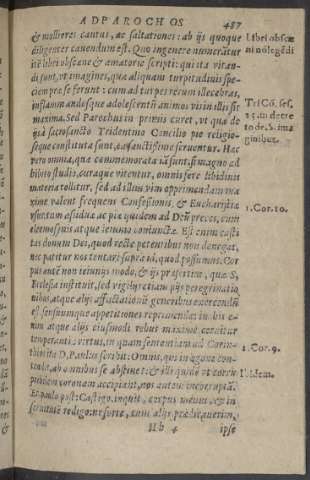 AD PAROCHOS 487
& molliores cantus, ac saltationes: ab ijs quoque
diligenter cauendum est. Quo in genere numerãtur
itẽ libri obscœne & amatorie scripti: qui ita vitan-
di sunt, vt imagines, quæ aliquam turpitudinis spe-
ciem præ se ferunt: cum ad turpes rerum illecebras,
inflammandosque adolescentiũ animos vis in illis sit
maxima. Sed Parochus in primis curet, vt quæ de
ijs à sacrosancto Tridentino Concilio pie religio-
seque constituta sunt, ea sanctissime seruentur. Hæc
vero omnia, quæ commemorata sunt, si magno ad
hibito studio, curaque vitentur, omnis fere libidinis
materia tollitur. sed ad illius vim opprimendam ma
xime valent frequens Confessionis, & Eucharistiæ
vsus, tum assiduæ ac piæ quædem ad Deũ preces, cum
eleemosynis atque ieiunio coniunctæ. Est enim casti
tas donum Dei, quod recte petentibus non denegat,
nec patitur nos tentari supra id, quod possumus. Cor
pus autẽ non ieiunijs modo, & ijs præsertim, quæ S.
Ecclesia instituit, sed vigilijs etiam pijs peregrinatio
nibus, atque alijs afflictationũ generibus exercendũ
est sensuumque appetitiones reprimendæ. in his e-
nim atque alijs eiusmodi rebus maxime cernitur
temperantiæ virtus, in quam sententiam ad Corin-
thios ita D. Paulus scribit: Omnis, qui in agone con-
tendit, ab omnibus se abstinet: & illi quidẽ vt corru-
ptibilem coronam accipiant, nos autem incorruptã.
Et paulo post: Castigo, inquit, corpus meum, & in
seruitutẽ redigo: ne forte, cum alijs prædicauerim,
Hh 4 ipse
Libri obscœ
ni nõ legẽdi
Tri Cõ. ses.
25. in decre
to de S. ima
ginibus.
1. Cor. 10.
1. Cor. 9.
Ibidem.